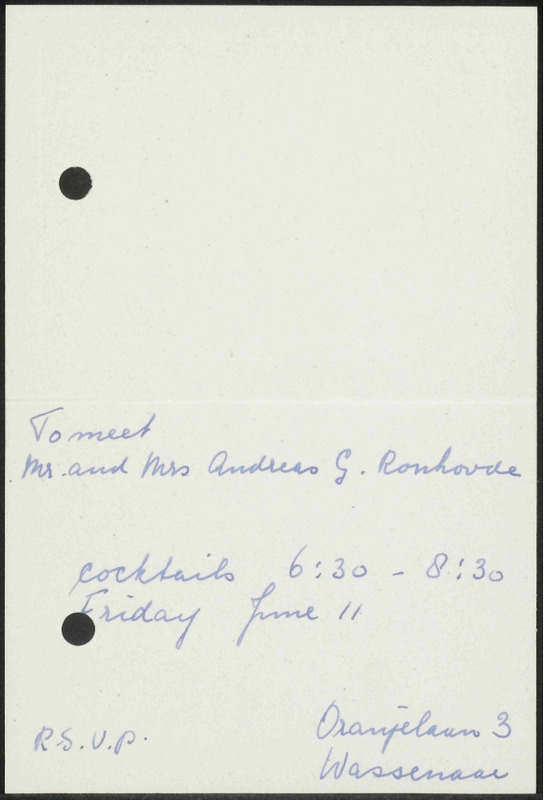 To meet
Mr. and Mrs Andreas G. Ronhovde
cocktails 6:30 - 8:30
Friday June 11
Oranjelaan 3
R.S.V.P.
Wassenaar